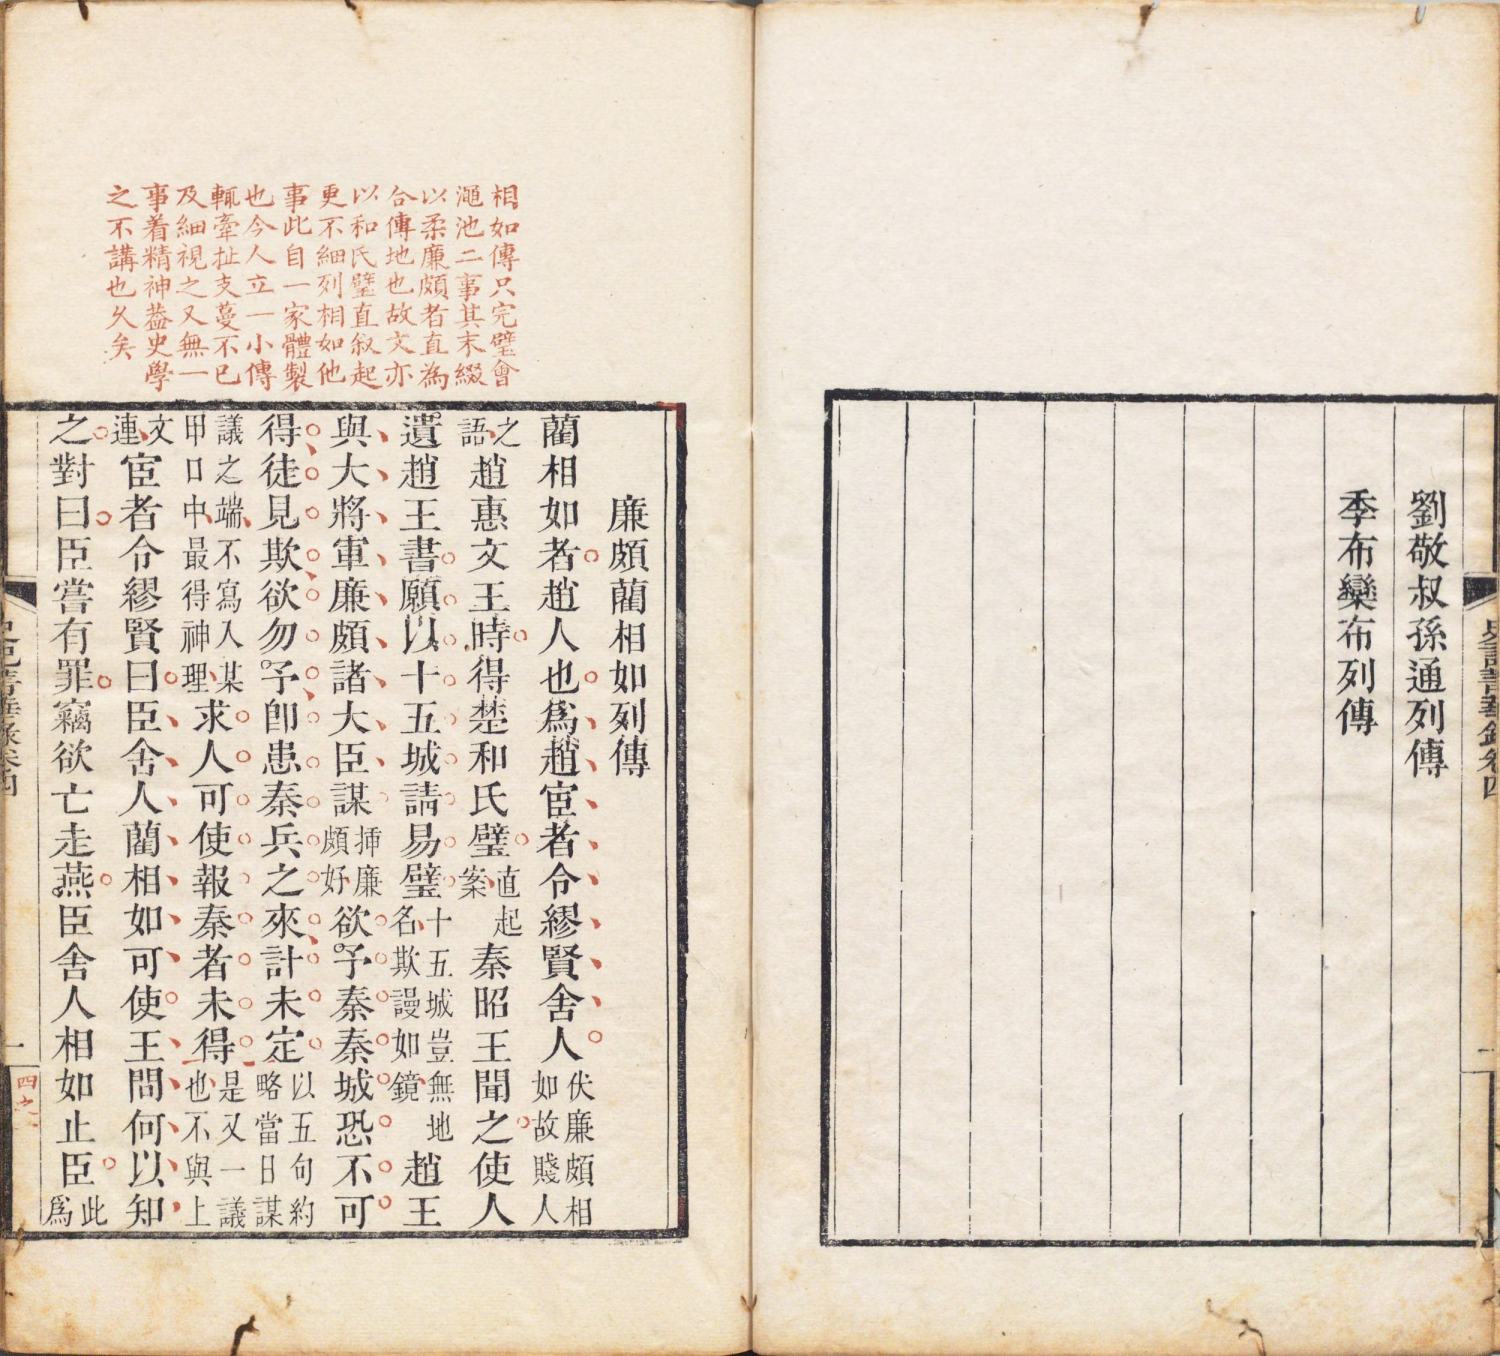 劉敬叔孫通列傳
季布欒布列傳
相如傳只完璧會
澠池二事其末綴
以柔廉頗者直為
合傳地也故文亦
以和氏璧直敘起
更不細列相如他
事此自一家體製
也今人立一小傳
輒牽扯支蔓不已
及細視之又無一
事着精神葢史學
之不講也久矣
廉頗藺相如列傳
藺相如者趙人也爲趙宦者令繆賢舍人伏廉頗相如故賤人
之語趙惠文王時得楚和氏璧直起案秦昭王聞之使人
遺趙王書願以十五城請易璧十五城豈無地名欺謾如鏡趙王
與大將軍廉頗諸大臣謀揷廉頗好欲予秦秦城恐不可
得徒見欺欲勿予卽患秦兵之來計未定以五句約略當日謀
議之端不寫入某甲口中最得神理求人可使報秦者未得是又一議也不與上
文連宦者令繆賢曰臣舍人藺相如可使王問何以知
之對曰臣嘗有罪竊欲亡走燕臣舍人相如止臣此爲
一
四之一